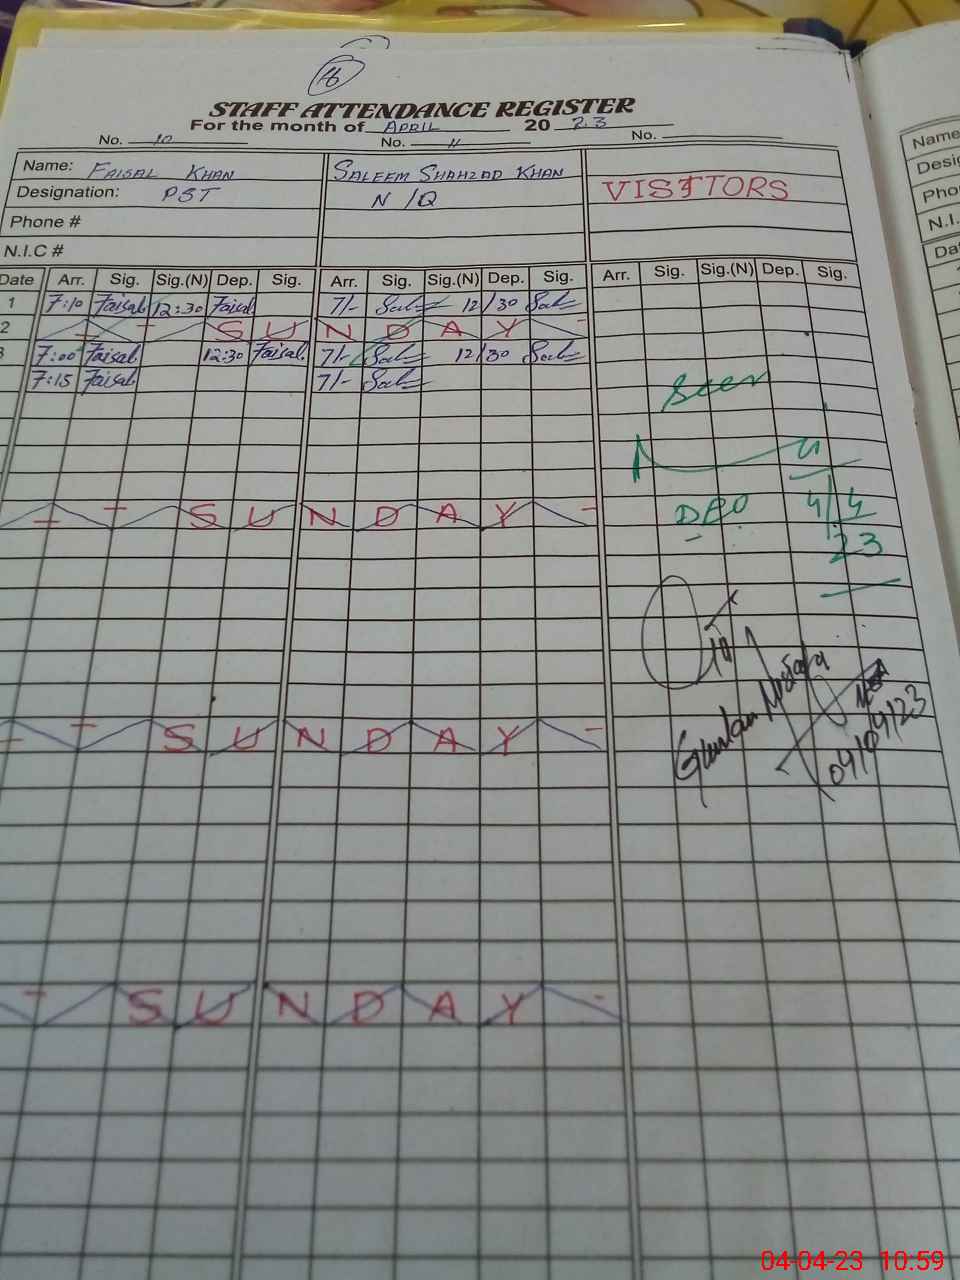 16
STAFF ATTENDANCE REGISTER
For the month of APRIL 20 23
No. 10 No. 11 No.
Name: FAISAL KHAN SALEEM SHAHZAD KHAN
Designation: PST N/Q VISITORS
Phone #
N.I.C #
Date Arr. Sig. Sig.(N) Dep. Sig. Arr. Sig. Sig.(N) Dep. Sig. Arr. Sig. Sig.(N) Dep. Sig.
1 7:10 Faisal 12:30 Faisal 7/- 12/30
2 SUNDAY
3 7:00 Faisal 12:30 Faisal 7/- 12/30
7:15 Faisal 7/-
Seen
SUNDAY
DEO 4/4
23
Ghulam Mustafa
04/04/23
SUNDAY
SUNDAY
Name
Desig
Pho
N.I.
Dat
04-04-23 10:59